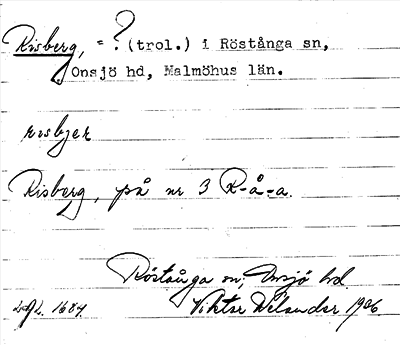 Risberg, = ? (trol.) i Röstånga sn,
Onsjö hd, Malmöhus län.
risbjer
Risberg, på nr 3 R-å-a.
Röstånga sn, Onsjö hd
1684. Viktor Welander 1926